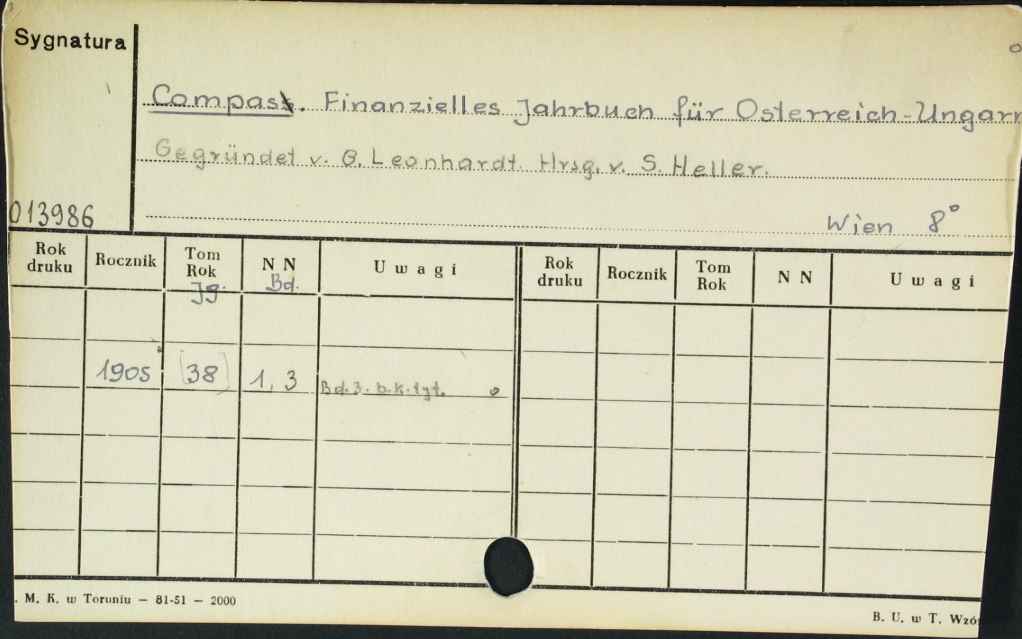 Sygnatura
Compass. Finanzielles Jahrbuch für Österreich-Ungarn
Gegründet v. G. Leonhardt. Hrsg. v. S. Heller.
013986
Wien 8°
Rok druku Rocznik Tom Rok N N U w a g i Rok druku Rocznik Tom Rok N N U w a g i
Jg. Bd.
1905 [38] 1, 3 Bd. 3. b. k. tyt.
. M. K. w Toruniu — 81-51 — 2000
B. U. w T. Wzó